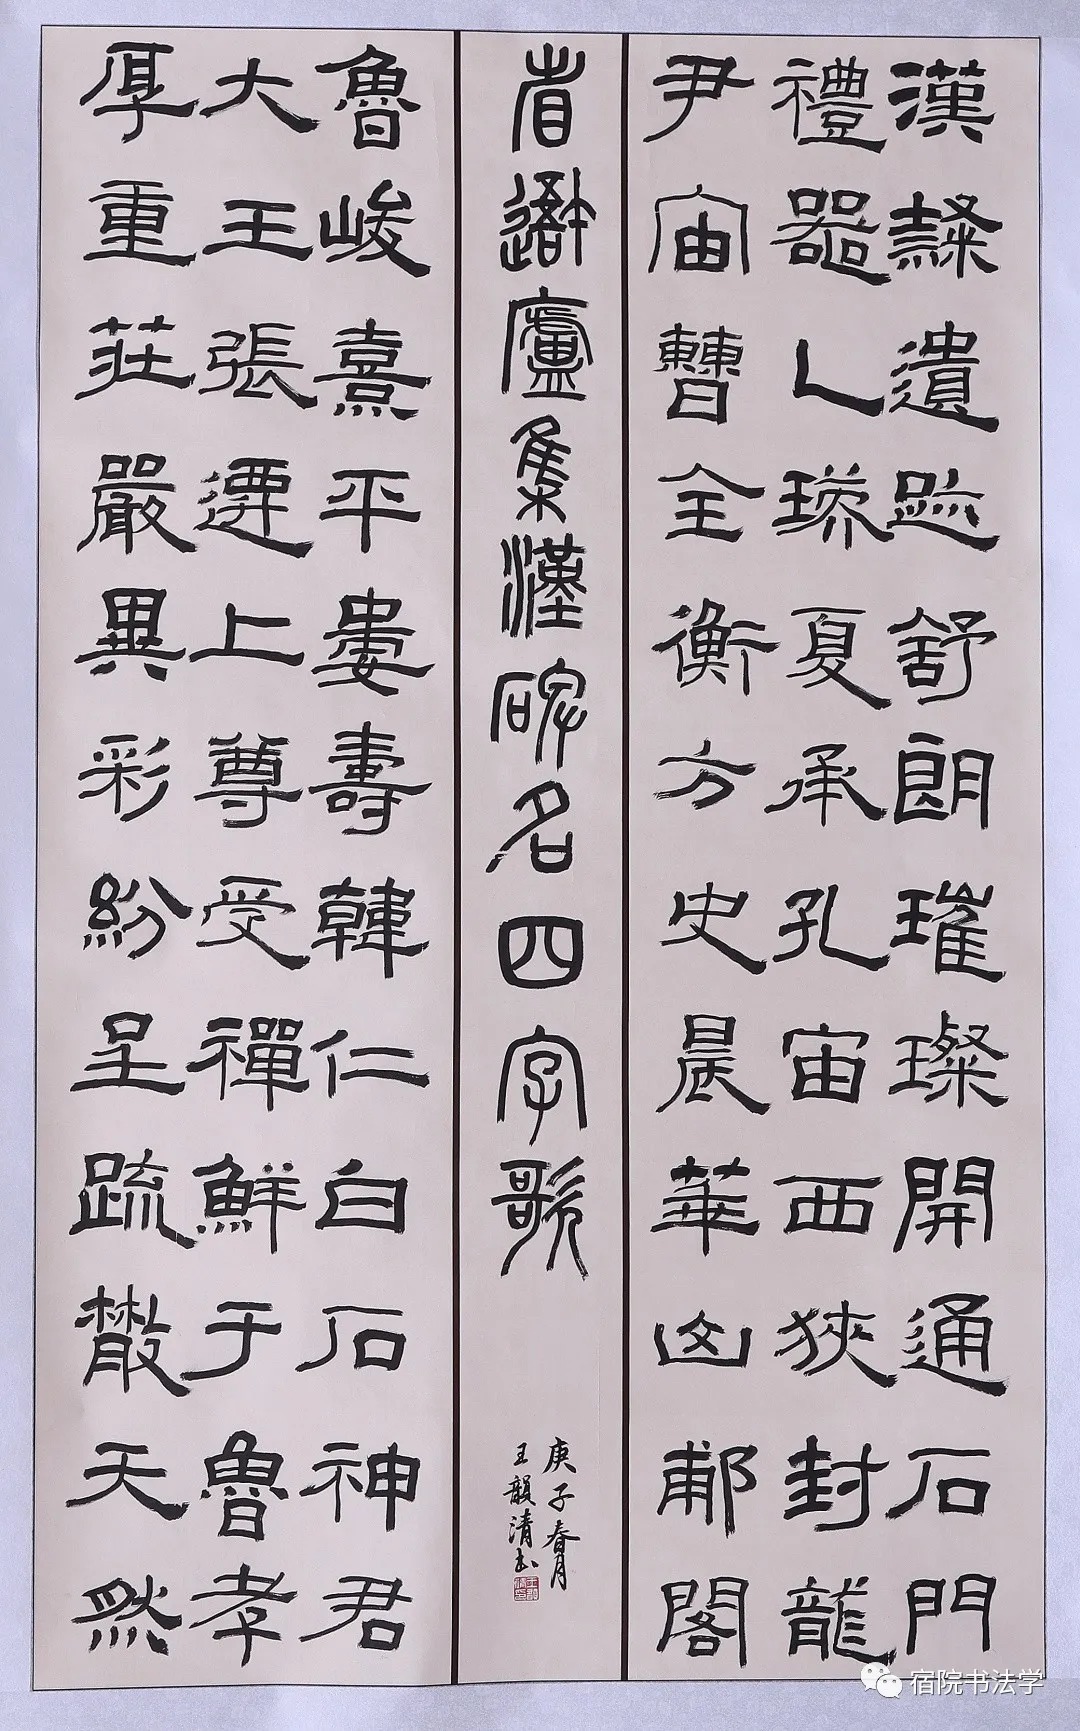 漢隸遺跡舒朗璀璨開通石門
禮器乙瑛夏承孔宙西狹封龍
尹宙曹全衡方史晨華山郙閣
省廬集漢碑名四字歌
庚子春月
王韻清書
魯峻熹平婁壽韓仁白石神君
大王張遷上尊受禪鮮于魯孝
厚重莊嚴異彩紛呈疏散天然
宿院书法学